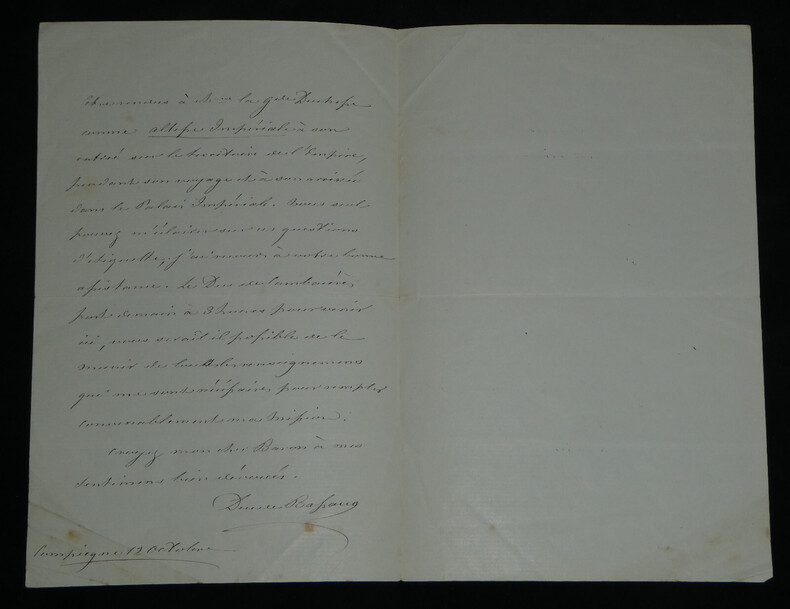 être rendus à Mme la gde Duchesse
comme altesse Impériale à son
entrée sur le territoire de l'Empire,
pendant son voyage et à son arrivée
dans le Palais Impérial. Vous seul
pouvez m'éclairer sur ces questions
d'étiquette, j'ai recours à votre bonne
assistance. Le Duc de Cambacérès,
part demain à 3 heures pour venir
ici, vous serait il possible de le
munir de tous les renseignemens
qui me sont nécessaires pour remplir
convenablement ma mission.
Croyez mon cher Baron à mes
sentimens bien dévoués.
Duc de Bassano
Compiègne 12 octobre